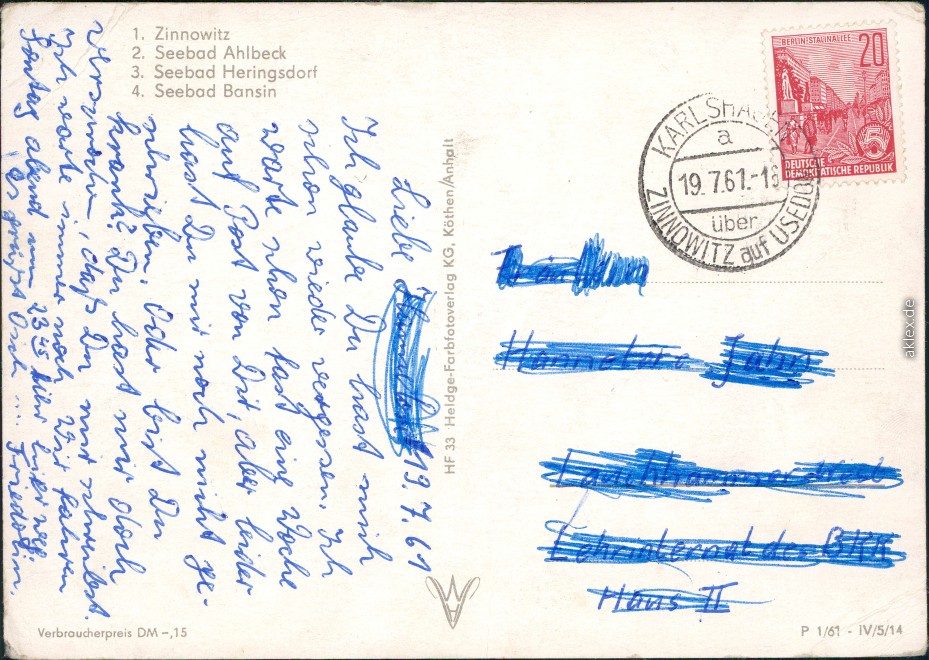 1. Zinnowitz
2. Seebad Ahlbeck
3. Seebad Heringsdorf
4. Seebad Bansin
Liebe 19.7.61
Ich glaube Du hast mich
schon wieder vergessen. Ich
warte schon fast eine Woche
auf Post von Dir, aber leider
hast Du mir noch nicht ge-
schrieben. Oder bist Du
krank? Du hast mir doch
versprochen, daß Du mir schreibst.
Ich warte immer noch. Wir fahren
Sontag abend um 23 45 hier
Es grüßt Dich ... Friedolin.
HF 33 Heldge-Farbfotoverlag KG, Köthen/Anhalt
BERLIN·STALINALLEE 20
DEUTSCHE
DEMOKRATISCHE REPUBLIK
KARLSHAGEN
a
19.7.61.-16
über
ZINNOWITZ auf USEDOM
Hannelore Jahn
Lauchhammer
Lehrinternat des BKK
Haus II
Verbraucherpreis DM -,15
P 1/61 - IV/5/14
aklex.de